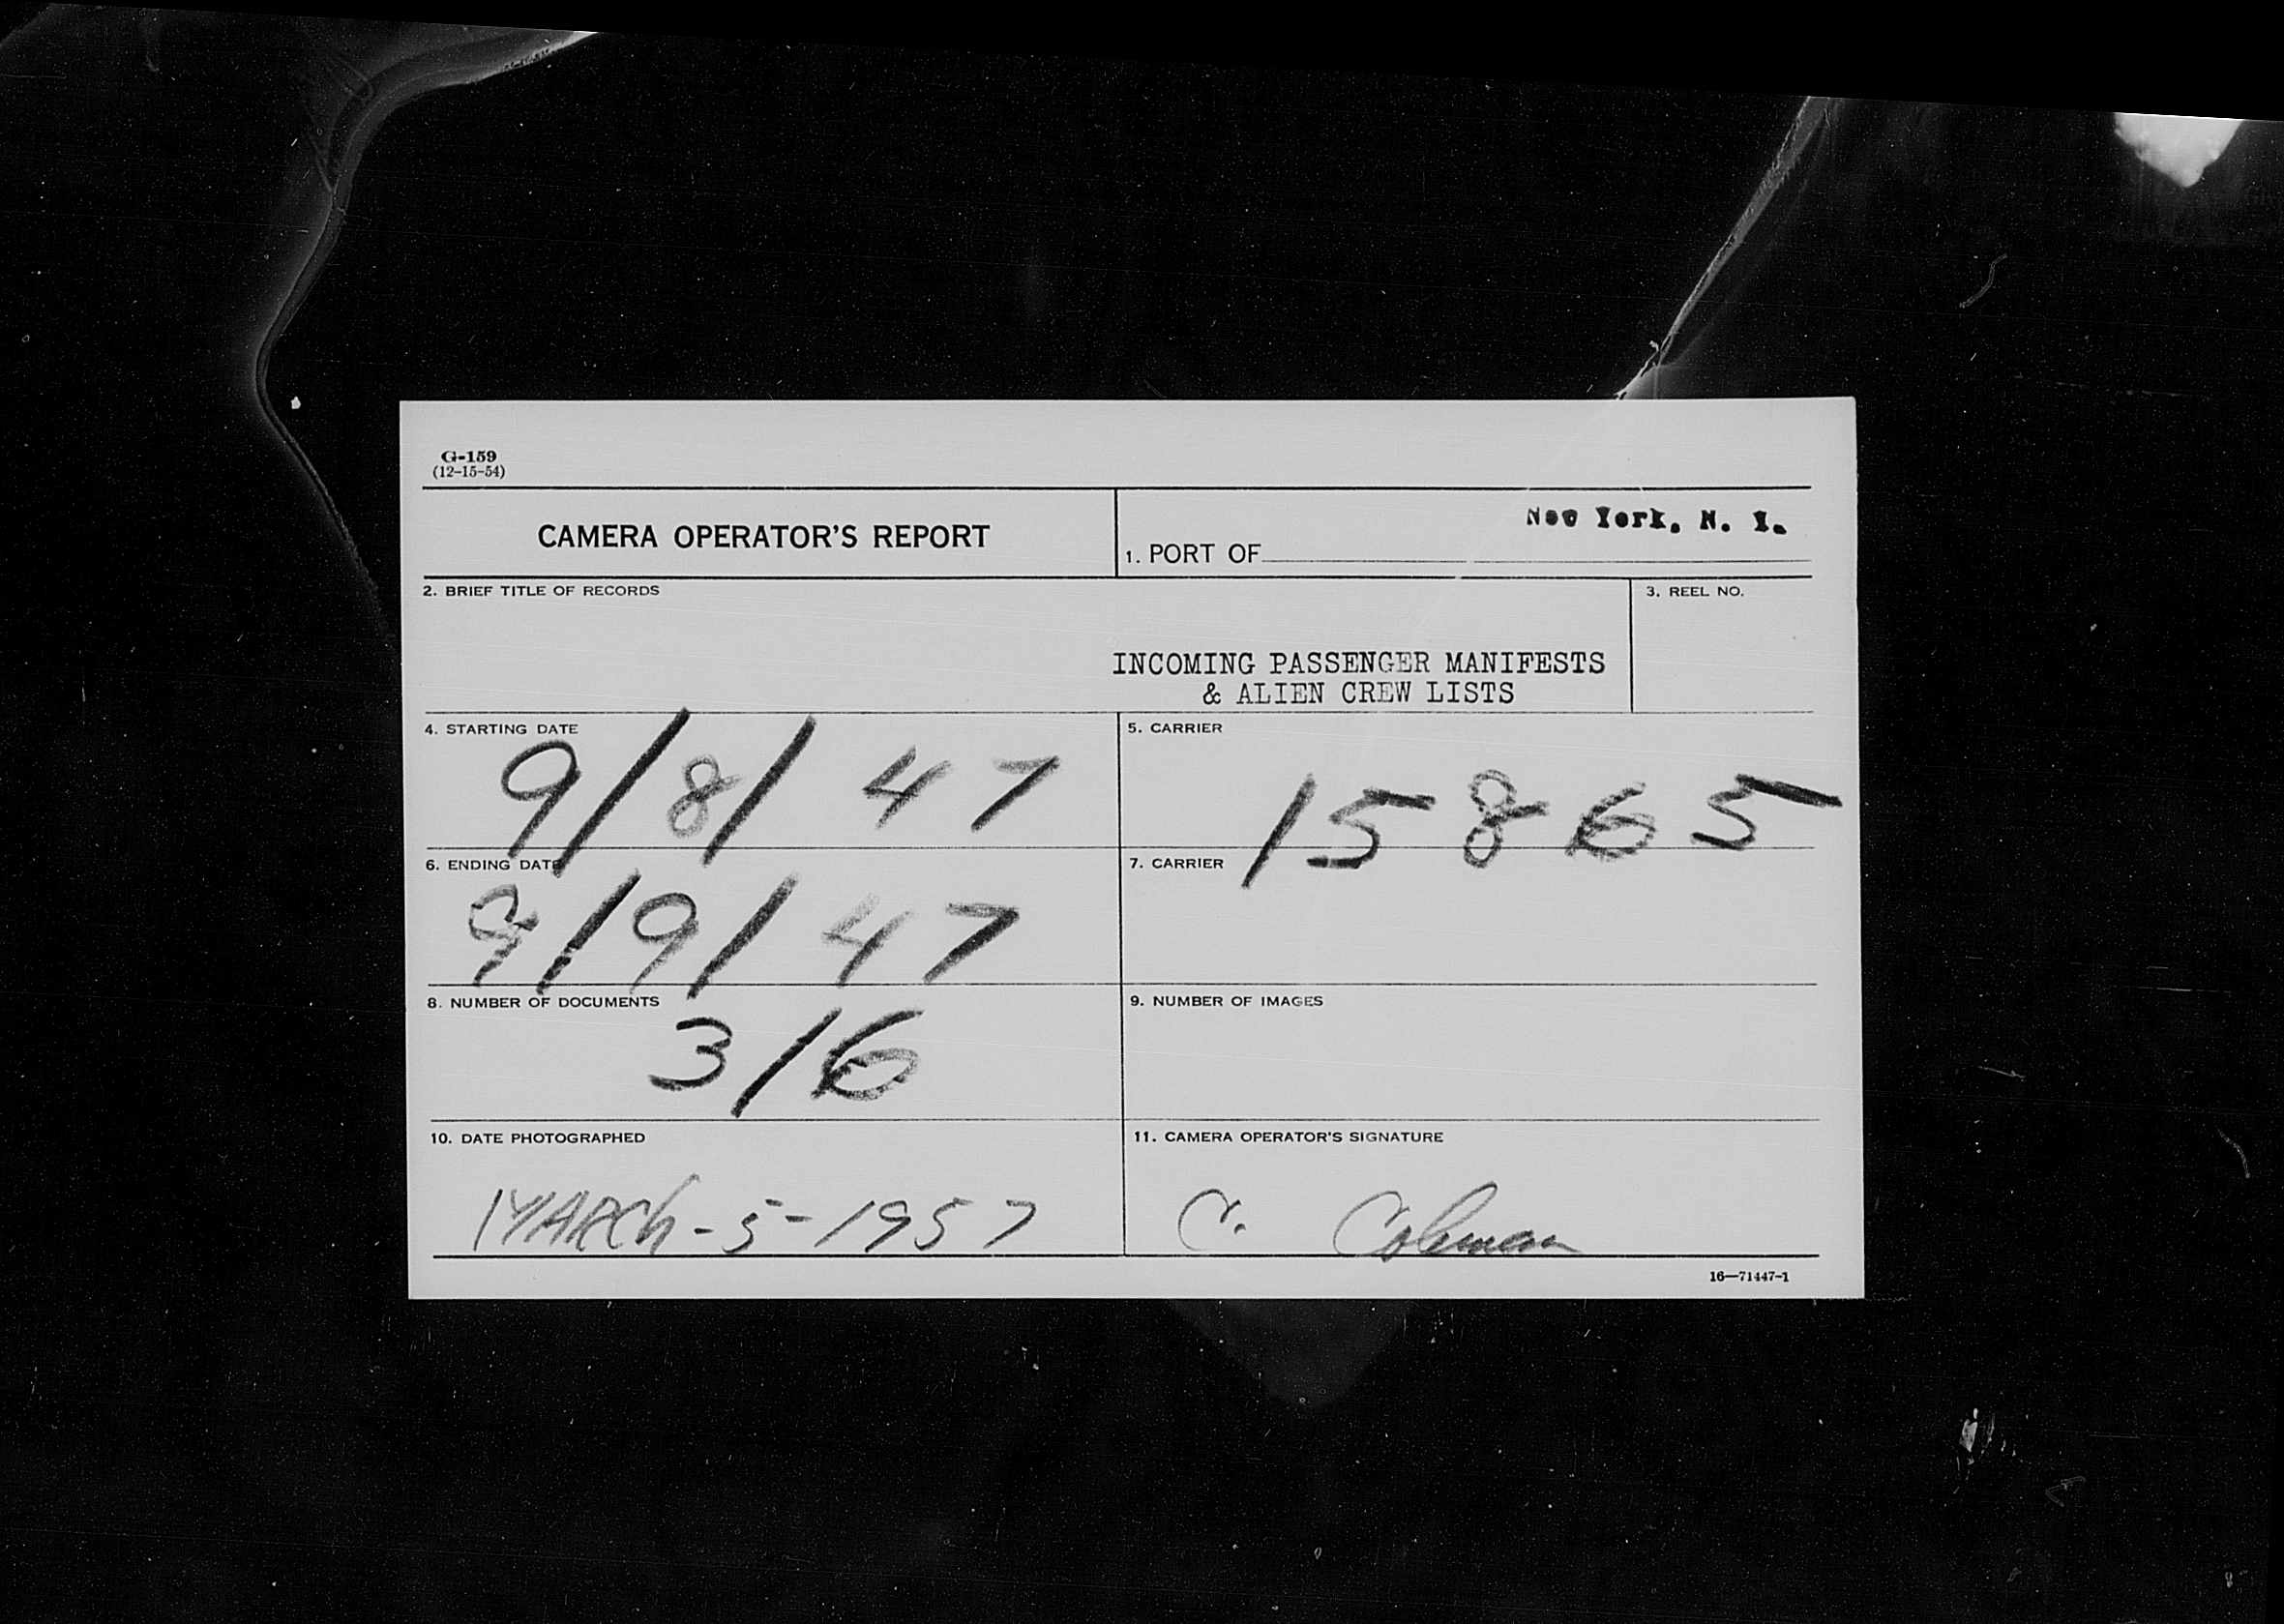 G-159
(12-15-54)
CAMERA OPERATOR'S REPORT
1. PORT OF New York, N. Y.
2. BRIEF TITLE OF RECORDS
INCOMING PASSENGER MANIFESTS
& ALIEN CREW LISTS
3. REEL NO.
4. STARTING DATE
9/8/47
5. CARRIER
15865
6. ENDING DATE
9/9/47
7. CARRIER
8. NUMBER OF DOCUMENTS
316
9. NUMBER OF IMAGES
10. DATE PHOTOGRAPHED
MARCh-5-1957
11. CAMERA OPERATOR'S SIGNATURE
C. Coleman
16—71447-1